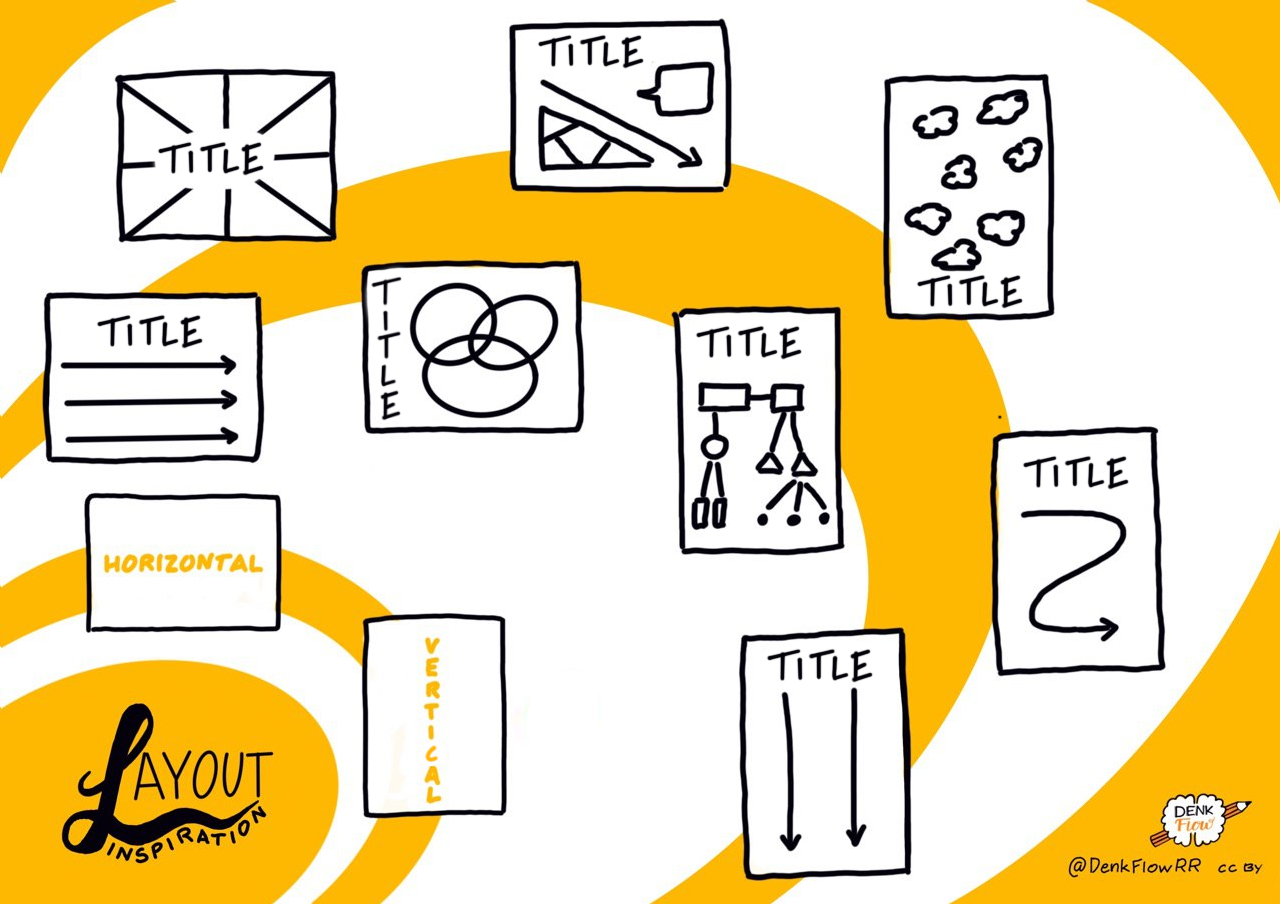 TITLE
TITLE
TITLE
TITLE
TITLE
TITLE
TITLE
HORIZONTAL
VERTICAL
TITLE
LAYOUT
INSPIRATION
DENK
Flow
@DenkFlowRR CC BY